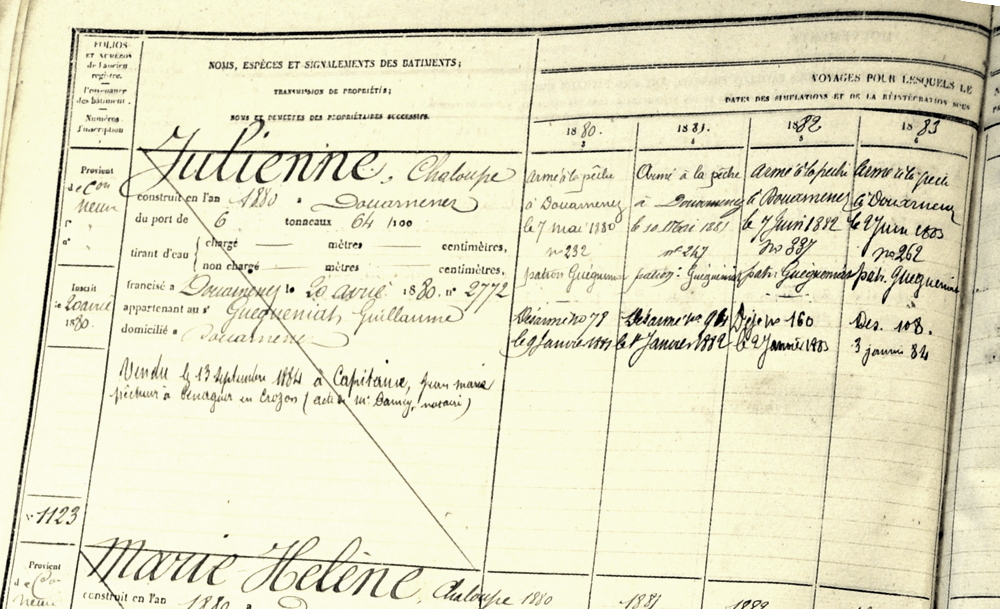 FOLIOS
ET NUMÉROS
de l'ancien
registre.
Provenance
des bâtiment.
Numéros
d'inscription
NOMS, ESPÈCES ET SIGNALEMENTS DES BATIMENTS;
TRANSMISSION DE PROPRIÉTÉS;
NOMS ET DEMEURES DES PROPRIÉTAIRES SUCCESSIFS.
VOYAGES POUR LESQUELS LE
DATES DES SIMULATIONS ET DE LA RÉINTÉGRATION SOUS
1880.
1881.
1882
1883
3
4
5
6
Provient
de Con
neum
f°
n°
Inscrit
le 20 avril
1880.
n° 1123
Julienne, Chaloupe
construit en l'an 1880 a Douarnenez
du port de 6 tonneaux 64 /100
tirant d'eau { chargé mètres centimètres,
non chargé mètres centimètres,
francisé a Douarnenez le 20 avril 1880. n° 2772
appartenant au sr Guéguéniat, Guillaume
domicilié a Douarnenez
Vendu le 13 septembre 1884 à Capitaine, Jean marie
pêcheur à en Crozon (acte de Me notaire)
Armé à la pêche
à Douarnenez
le 7 mai 1880
n° 232
patron Guéguéniat
Désarmé n° 79
le 9 Janvier 1881
Armé à la pêche
à Douarnenez
le 10 Mai 1881
n° 247
patron: Guéguéniat
Désarmé n° 94
le 8 Janvier 1882
Armé à la pêche
à Douarnenez
le 7 Juin 1882
n° 337
patr. Guéguéniat
Dés. n° 160
le 9 Janvier 1883
Armé à la pêche
à Douarnenez
le 9 Juin 1883
n° 262
patr. Guéguéniat
Des. 108.
3 janvier 84
Provient
de Con
neum
Marie Helène, Chaloupe
construit en l'an 1880 a
1880
1881
1882